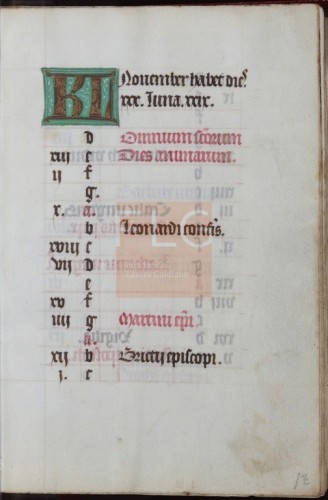 KL Nouember habet dies
xxx. luna. xxix.
d Omnium sctorum
xiii e Dies animarum.
ii f
g.
x. a.
b Leonardi confes.
xviii c
vii D
e
xv f
iiii g Martini epi.
a.
xii b Brictii episcopi.
j. c